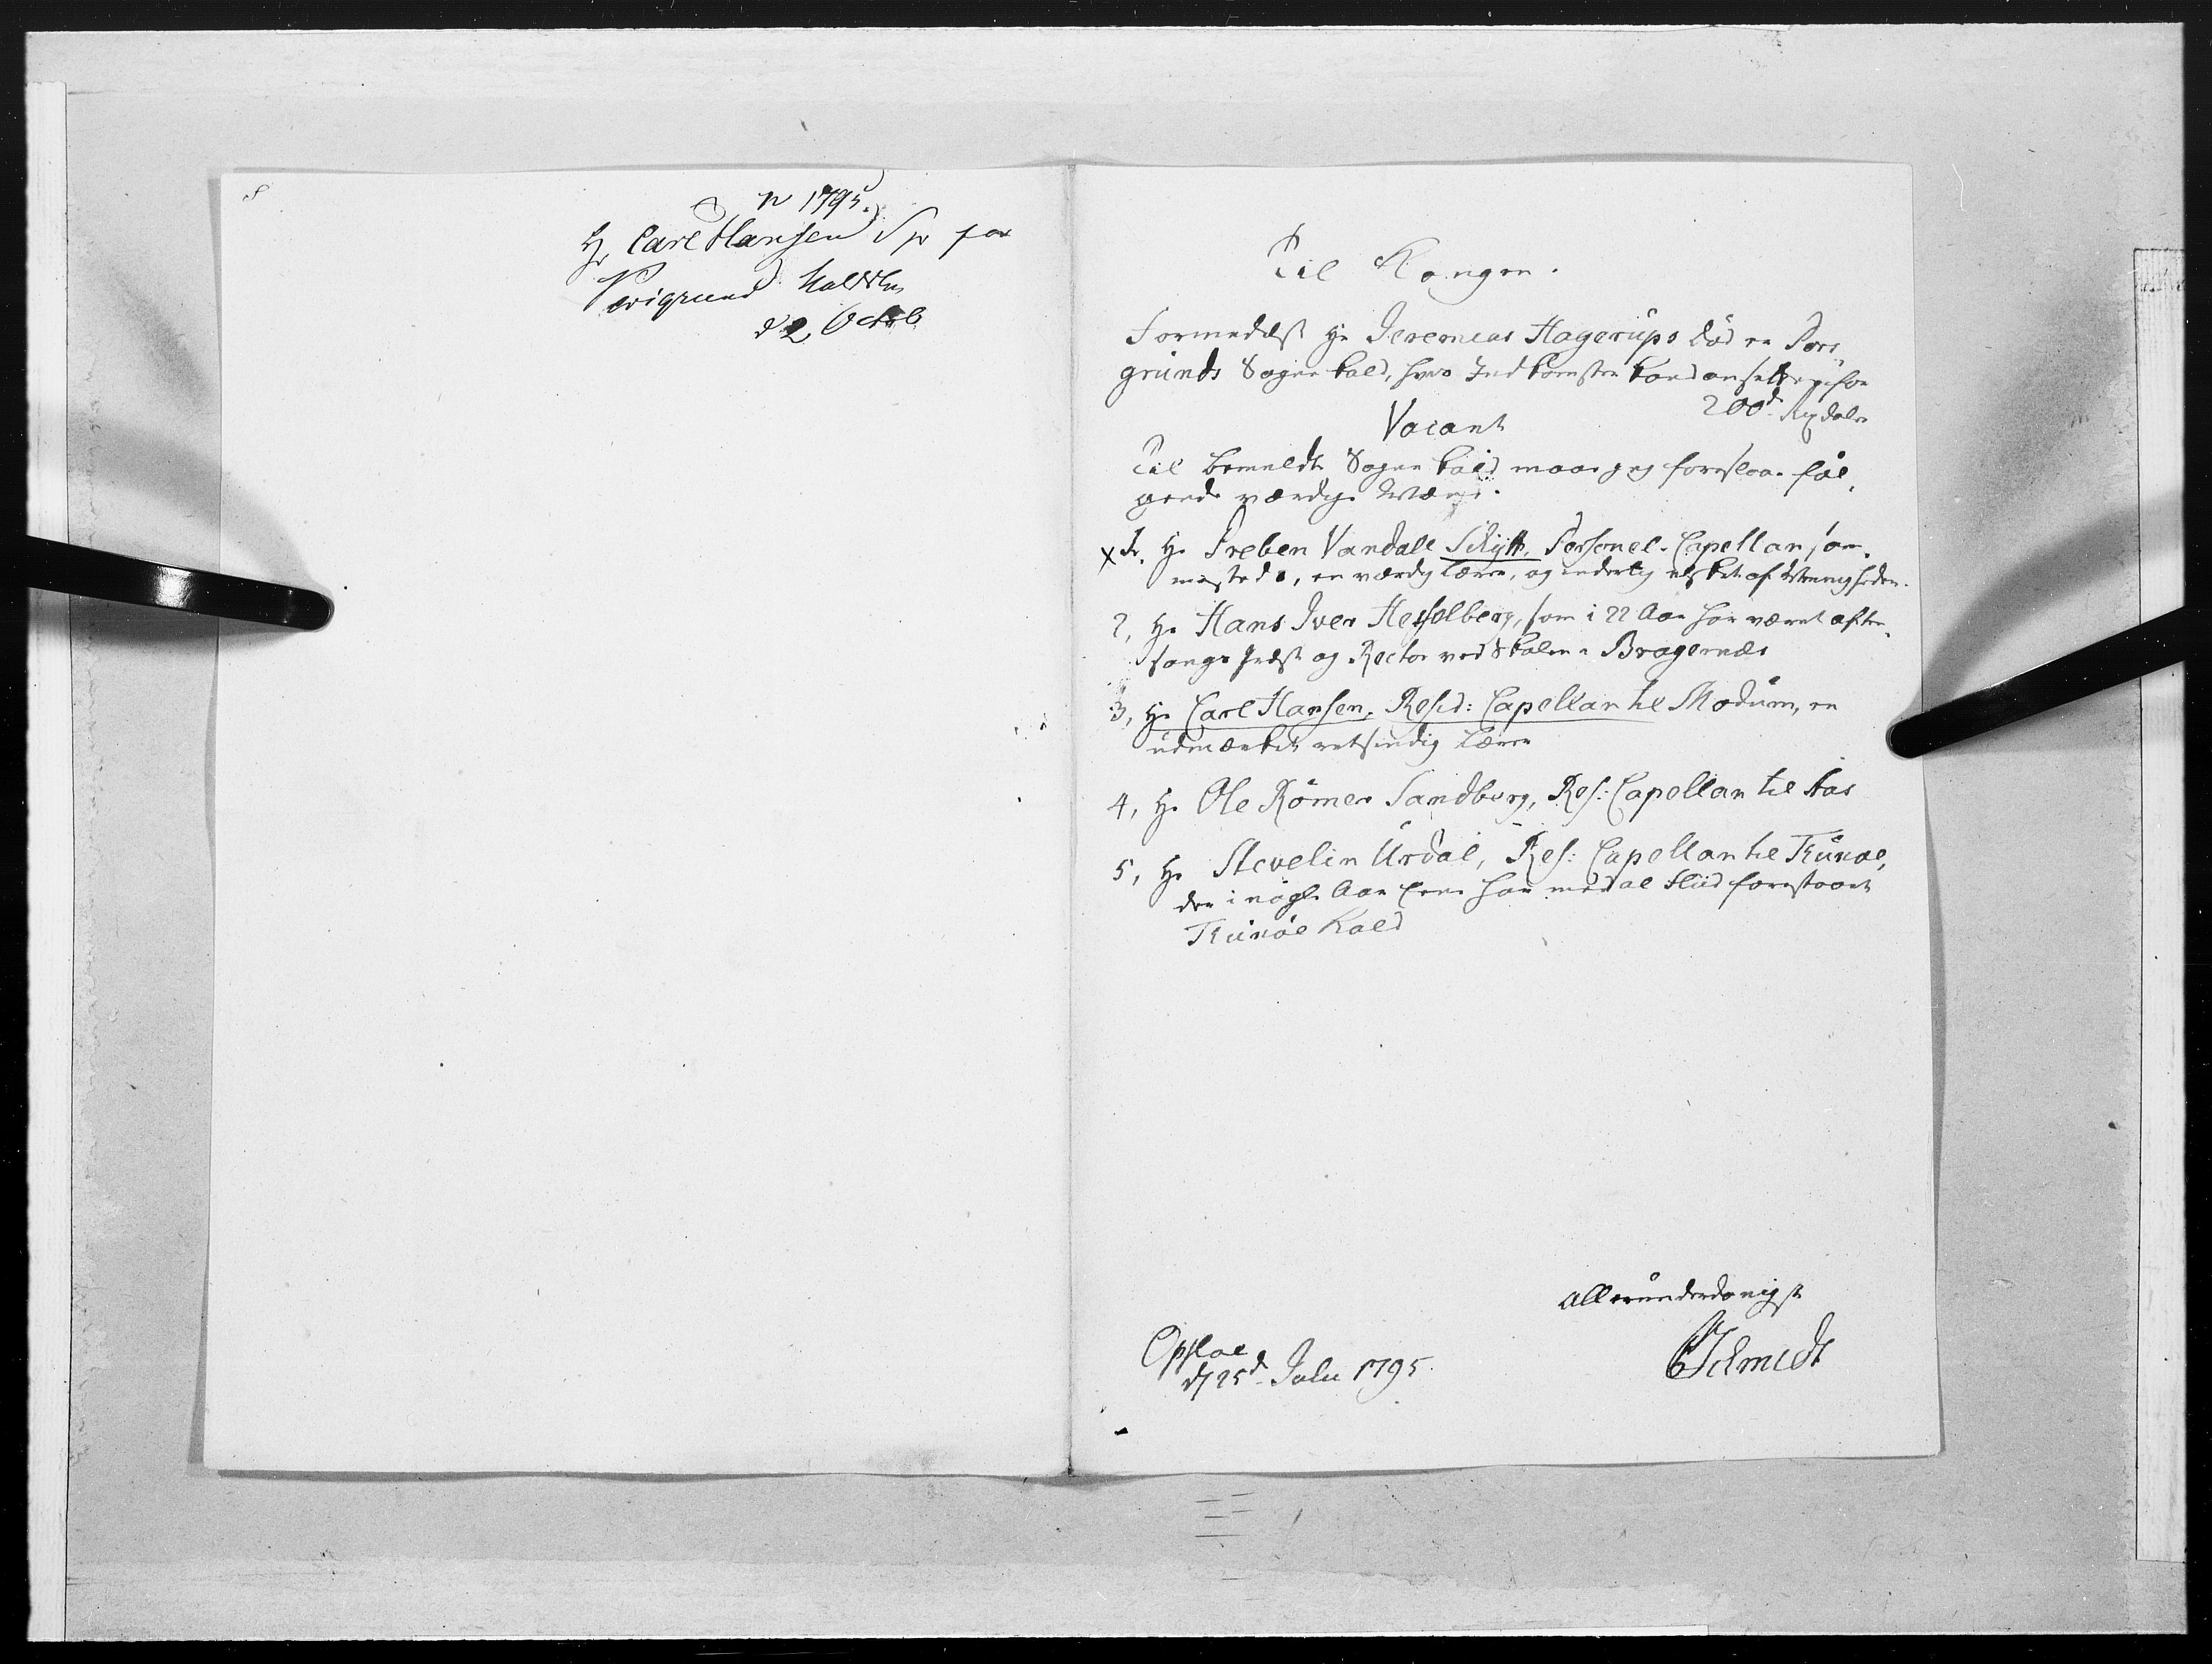 1795.
Hr Carl Hansen Sp for
Porsgrund Kald
d 2 Octob
Til Kongen.
Formedelst Hr Jeremias Hagerups Död er Pors-
grunds Sogne kald, hvis Indkomster kand ansættes for
200d Rixdaler
Vacant
Til bemeldte Sogne kald maae jeg foreslaae föl-
gende værdige Mænd.
x 1. Hr Preben Vandall Schÿtte, Personel-Capellan sam-
mesteds, en værdig Lærer, og inderlig elsket af Menigheden.
2, Hr Hans Iver Hesselberg, som i 22 Aar har været aften-
sangs Præst og Rector ved Skolen i Bragernæs
3, Hr Carl Hansen, Resid: Capellan til Modum, en
udmærket retsindig Lærer
4, Hr Ole Römer Sandberg, Res: Capellan til Aas
5, Hr Stevelin Urdal, Res: Capellan til Krüröe,
der i nogle Aar har med al Fliid forestaaet
Kald
allerunderdanigst
Schmidt
Opsloe
d 25d Julii 1795.